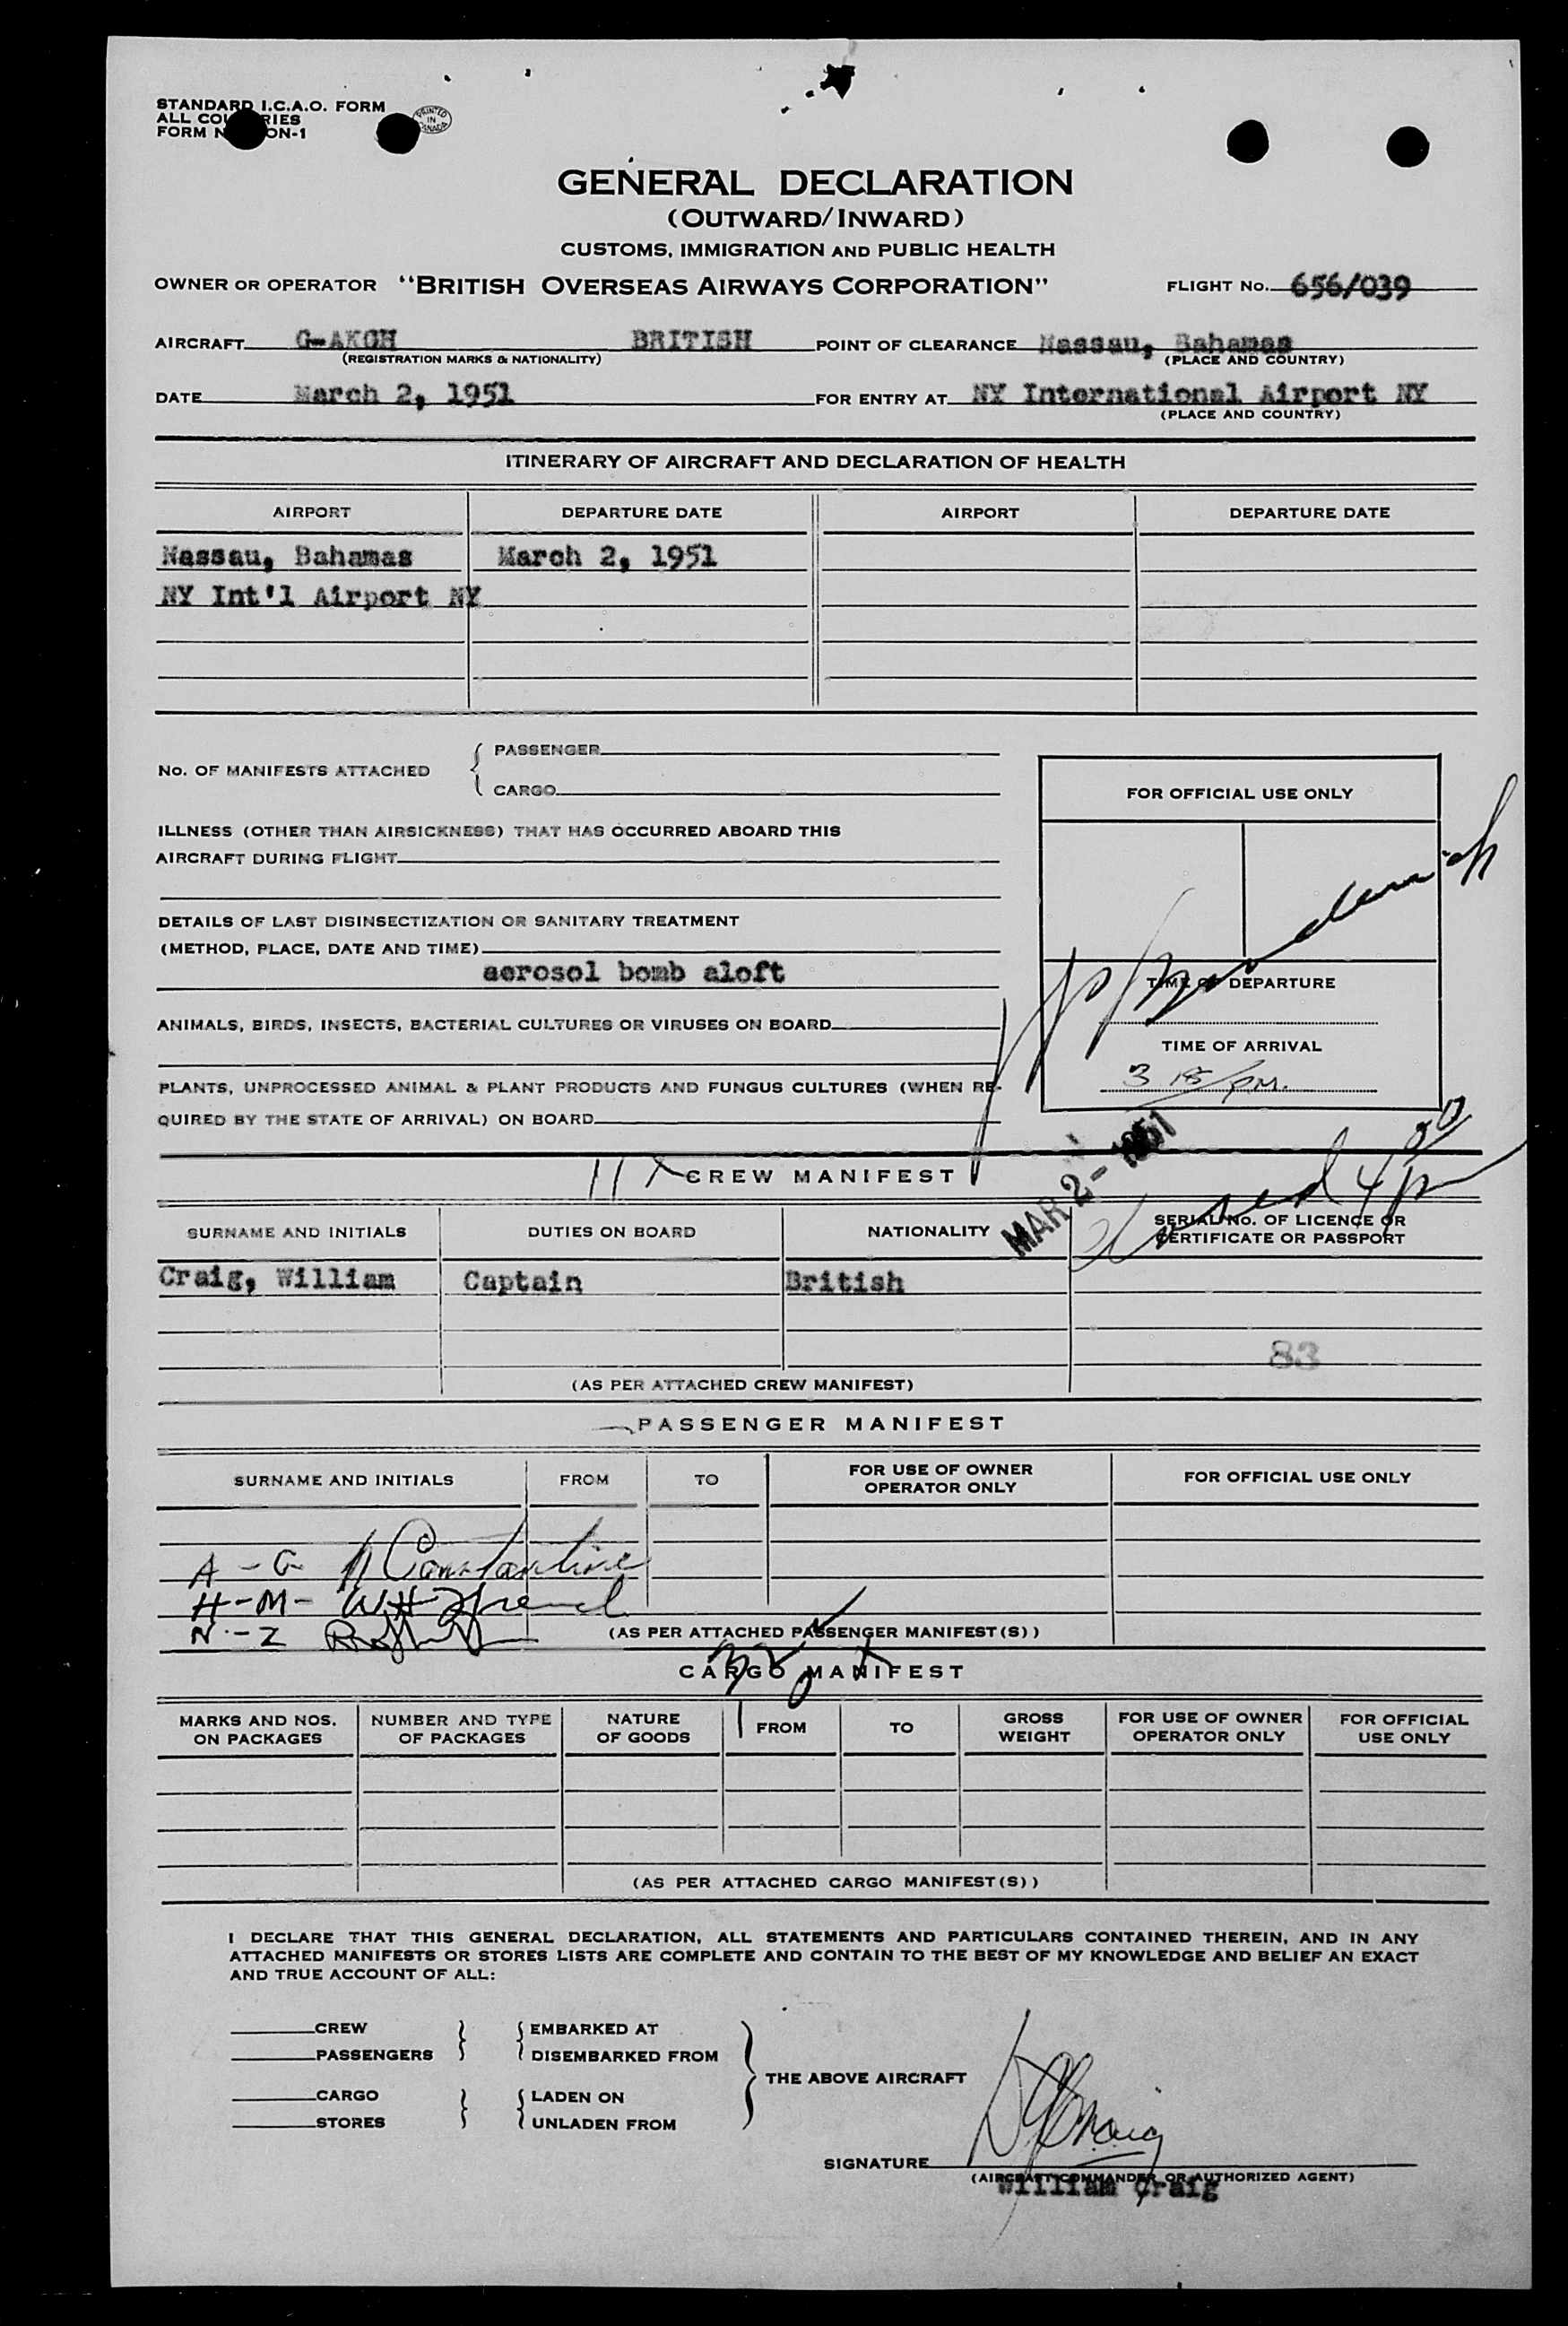 STANDARD I.C.A.O. FORM
ALL COUNTRIES
FORM ON-1
PRINTED IN CANADA
GENERAL DECLARATION
(OUTWARD/INWARD)
CUSTOMS, IMMIGRATION AND PUBLIC HEALTH
OWNER OR OPERATOR "BRITISH OVERSEAS AIRWAYS CORPORATION" FLIGHT No. 656/039
AIRCRAFT G-AKGH BRITISH POINT OF CLEARANCE Nassau, Bahamas
(REGISTRATION MARKS & NATIONALITY) (PLACE AND COUNTRY)
DATE March 2, 1951 FOR ENTRY AT NY International Airport NY
(PLACE AND COUNTRY)
ITINERARY OF AIRCRAFT AND DECLARATION OF HEALTH
AIRPORT DEPARTURE DATE AIRPORT DEPARTURE DATE
Nassau, Bahamas March 2, 1951
NY Int'l Airport NY
No. OF MANIFESTS ATTACHED
PASSENGER
CARGO
FOR OFFICIAL USE ONLY
ILLNESS (OTHER THAN AIRSICKNESS) THAT HAS OCCURRED ABOARD THIS
AIRCRAFT DURING FLIGHT
DETAILS OF LAST DISINSECTIZATION OR SANITARY TREATMENT
(METHOD, PLACE, DATE AND TIME)
aerosol bomb aloft
TIME OF DEPARTURE
ANIMALS, BIRDS, INSECTS, BACTERIAL CULTURES OR VIRUSES ON BOARD
TIME OF ARRIVAL
3 15/PM.
PLANTS, UNPROCESSED ANIMAL & PLANT PRODUCTS AND FUNGUS CULTURES (WHEN RE-
QUIRED BY THE STATE OF ARRIVAL) ON BOARD
MAR 2 - 1951
11 CREW MANIFEST
SURNAME AND INITIALS DUTIES ON BOARD NATIONALITY SERIAL No. OF LICENCE OR
CERTIFICATE OR PASSPORT
Craig, William Captain British
83
(AS PER ATTACHED CREW MANIFEST)
PASSENGER MANIFEST
SURNAME AND INITIALS FROM TO FOR USE OF OWNER
OPERATOR ONLY FOR OFFICIAL USE ONLY
A - G Constantine
H - M - WH French
N - Z
(AS PER ATTACHED PASSENGER MANIFEST(S))
32
CARGO MANIFEST
MARKS AND NOS.
ON PACKAGES NUMBER AND TYPE
OF PACKAGES NATURE
OF GOODS FROM TO GROSS
WEIGHT FOR USE OF OWNER
OPERATOR ONLY FOR OFFICIAL
USE ONLY
(AS PER ATTACHED CARGO MANIFEST(S))
I DECLARE THAT THIS GENERAL DECLARATION, ALL STATEMENTS AND PARTICULARS CONTAINED THEREIN, AND IN ANY
ATTACHED MANIFESTS OR STORES LISTS ARE COMPLETE AND CONTAIN TO THE BEST OF MY KNOWLEDGE AND BELIEF AN EXACT
AND TRUE ACCOUNT OF ALL:
CREW EMBARKED AT
PASSENGERS DISEMBARKED FROM
THE ABOVE AIRCRAFT
CARGO LADEN ON
STORES UNLADEN FROM
SIGNATURE Craig
(AIRCRAFT COMMANDER OR AUTHORIZED AGENT)
William Craig